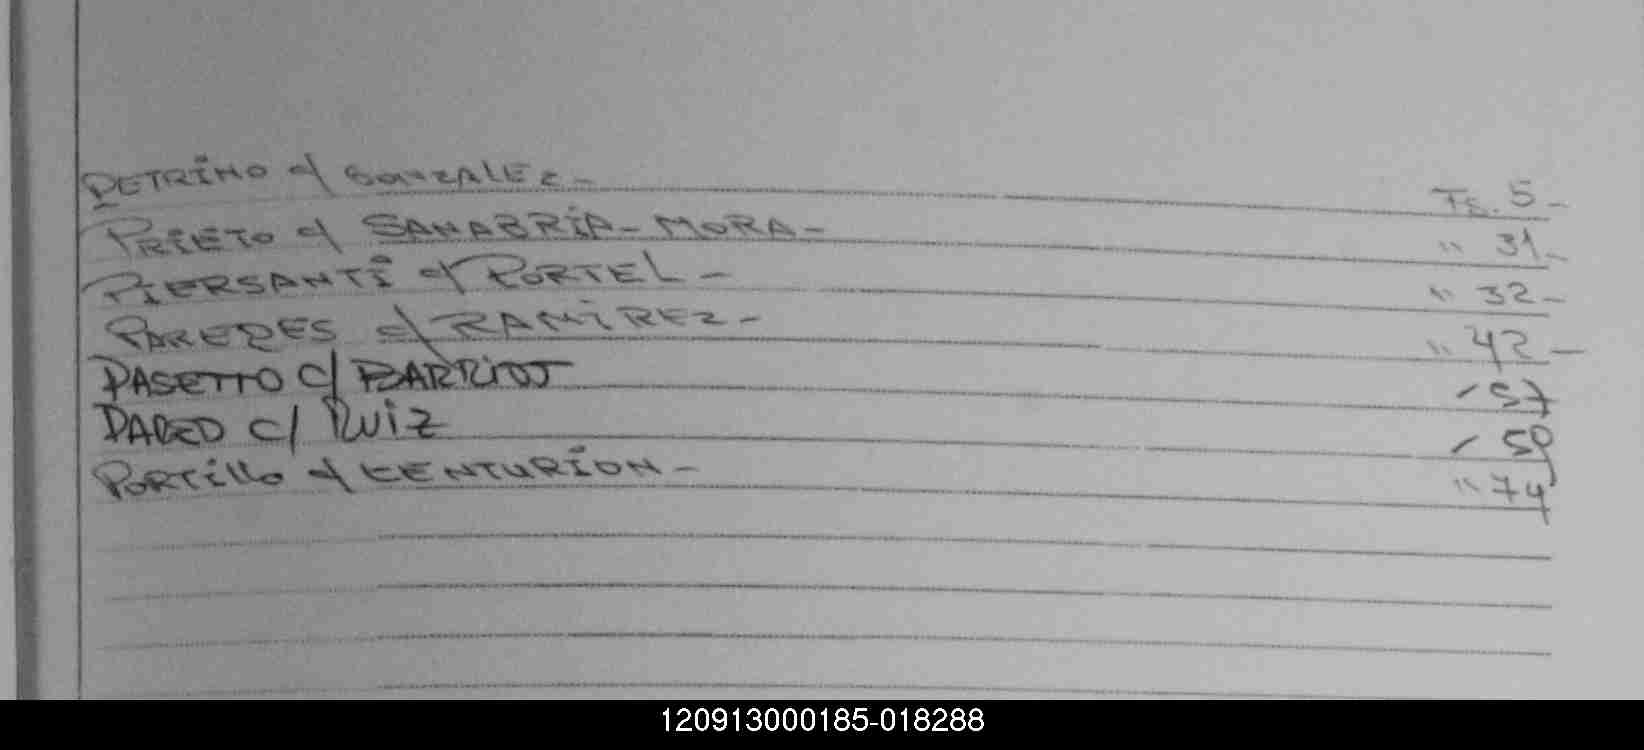 PETRINO c/ GONZALEZ - Fs. 5 -
PRIETO c/ SANABRIA - MORA - " 31 -
PIERSANTI c/ PORTEL - " 32 -
PAREDES c/ RAMIREZ - " 42 -
PASETTO c/ BARRIOS " 57
c/ RUIZ " 59
PORTILLO c/ CENTURION - " 74
120913000185-018288